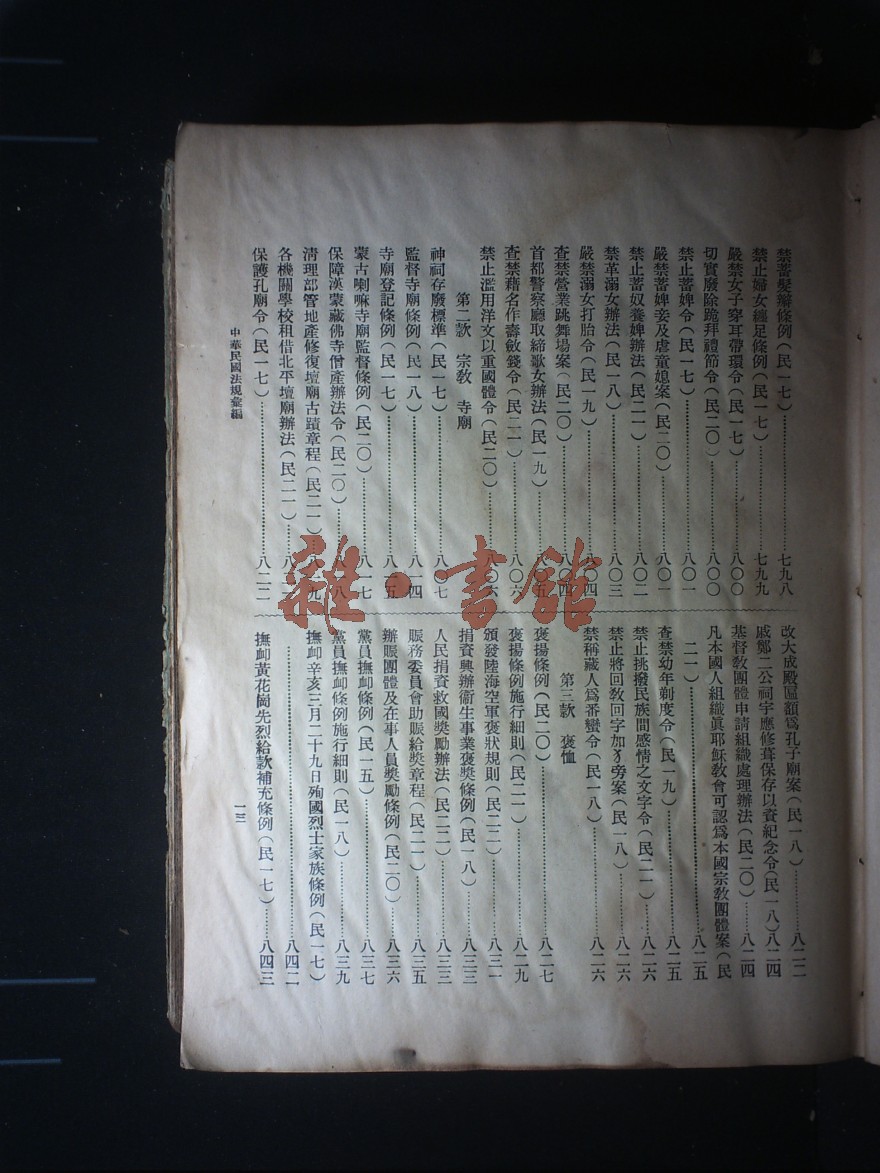 禁蓄髮辮條例（民一七）…………七九八
禁止婦女纏足條例（民一七）…………七九九
嚴禁女子穿耳帶環令（民一七）…………八〇〇
切實廢除跪拜禮節令（民二〇）…………八〇〇
禁止蓄婢令（民一七）…………八〇一
嚴禁蓄婢妾及虐童媳案（民二〇）…………八〇一
禁止蓄奴養婢辦法（民二一）…………八〇二
禁革溺女辦法（民一八）…………八〇三
嚴禁溺女打胎令（民一九）…………八〇四
查禁營業跳舞場案（民二〇）…………八〇四
首都警察廳取締歌女辦法（民一九）…………八〇五
查禁藉名作壽斂錢令（民二一）…………八〇六
禁止濫用洋文以重國體令（民二〇）…………八〇六
第二款　宗教　寺廟
神祠存廢標準（民一七）…………八〇七
監督寺廟條例（民一八）…………八一四
寺廟登記條例（民一七）…………八一五
蒙古喇嘛寺廟監督條例（民二〇）…………八一七
保障漢蒙藏佛寺僧產辦法令（民二〇）…………八一八
清理部管地產修復壇廟古蹟章程（民二一）…八一九
各機關學校租借北平壇廟辦法（民二一）…八二一
保護孔廟令（民一七）…………八二二
改大成殿匾額爲孔子廟案（民一八）…………八二二
戚鄭二公祠宇應修葺保存以資紀念令（民一八）八二四
基督教團體申請組織處理辦法（民二〇）…………八二四
凡本國人組織眞耶穌教會可認爲本國宗教團體案（民
二一）…………八二五
查禁幼年剃度令（民一九）…………八二五
禁止挑撥民族間感情之文字令（民二一）…………八二六
禁止將回教回字加犭旁案（民一八）…………八二六
禁稱藏人爲番蠻令（民一八）…………八二六
第三款　褒恤
褒揚條例（民二〇）…………八二七
褒揚條例施行細則（民二一）…………八二九
頒發陸海空軍褒狀規則（民二二）…………八三一
捐資興辦衞生事業褒獎條例（民一八）…………八三三
人民捐資救國獎勵辦法（民二二）…………八三四
賑務委員會助賑給獎章程（民二一）…………八三五
辦賑團體及在事人員獎勵條例（民二〇）…………八三六
黨員撫卹條例（民一五）…………八三七
黨員撫卹條例施行細則（民一八）…………八三九
撫卹辛亥三月二十九日殉國烈士家族條例（民一七）
…………八四二
撫卹黃花崗先烈給款補充條例（民一七）…………八四三
中華民國法規彙編
一三
雜·書館